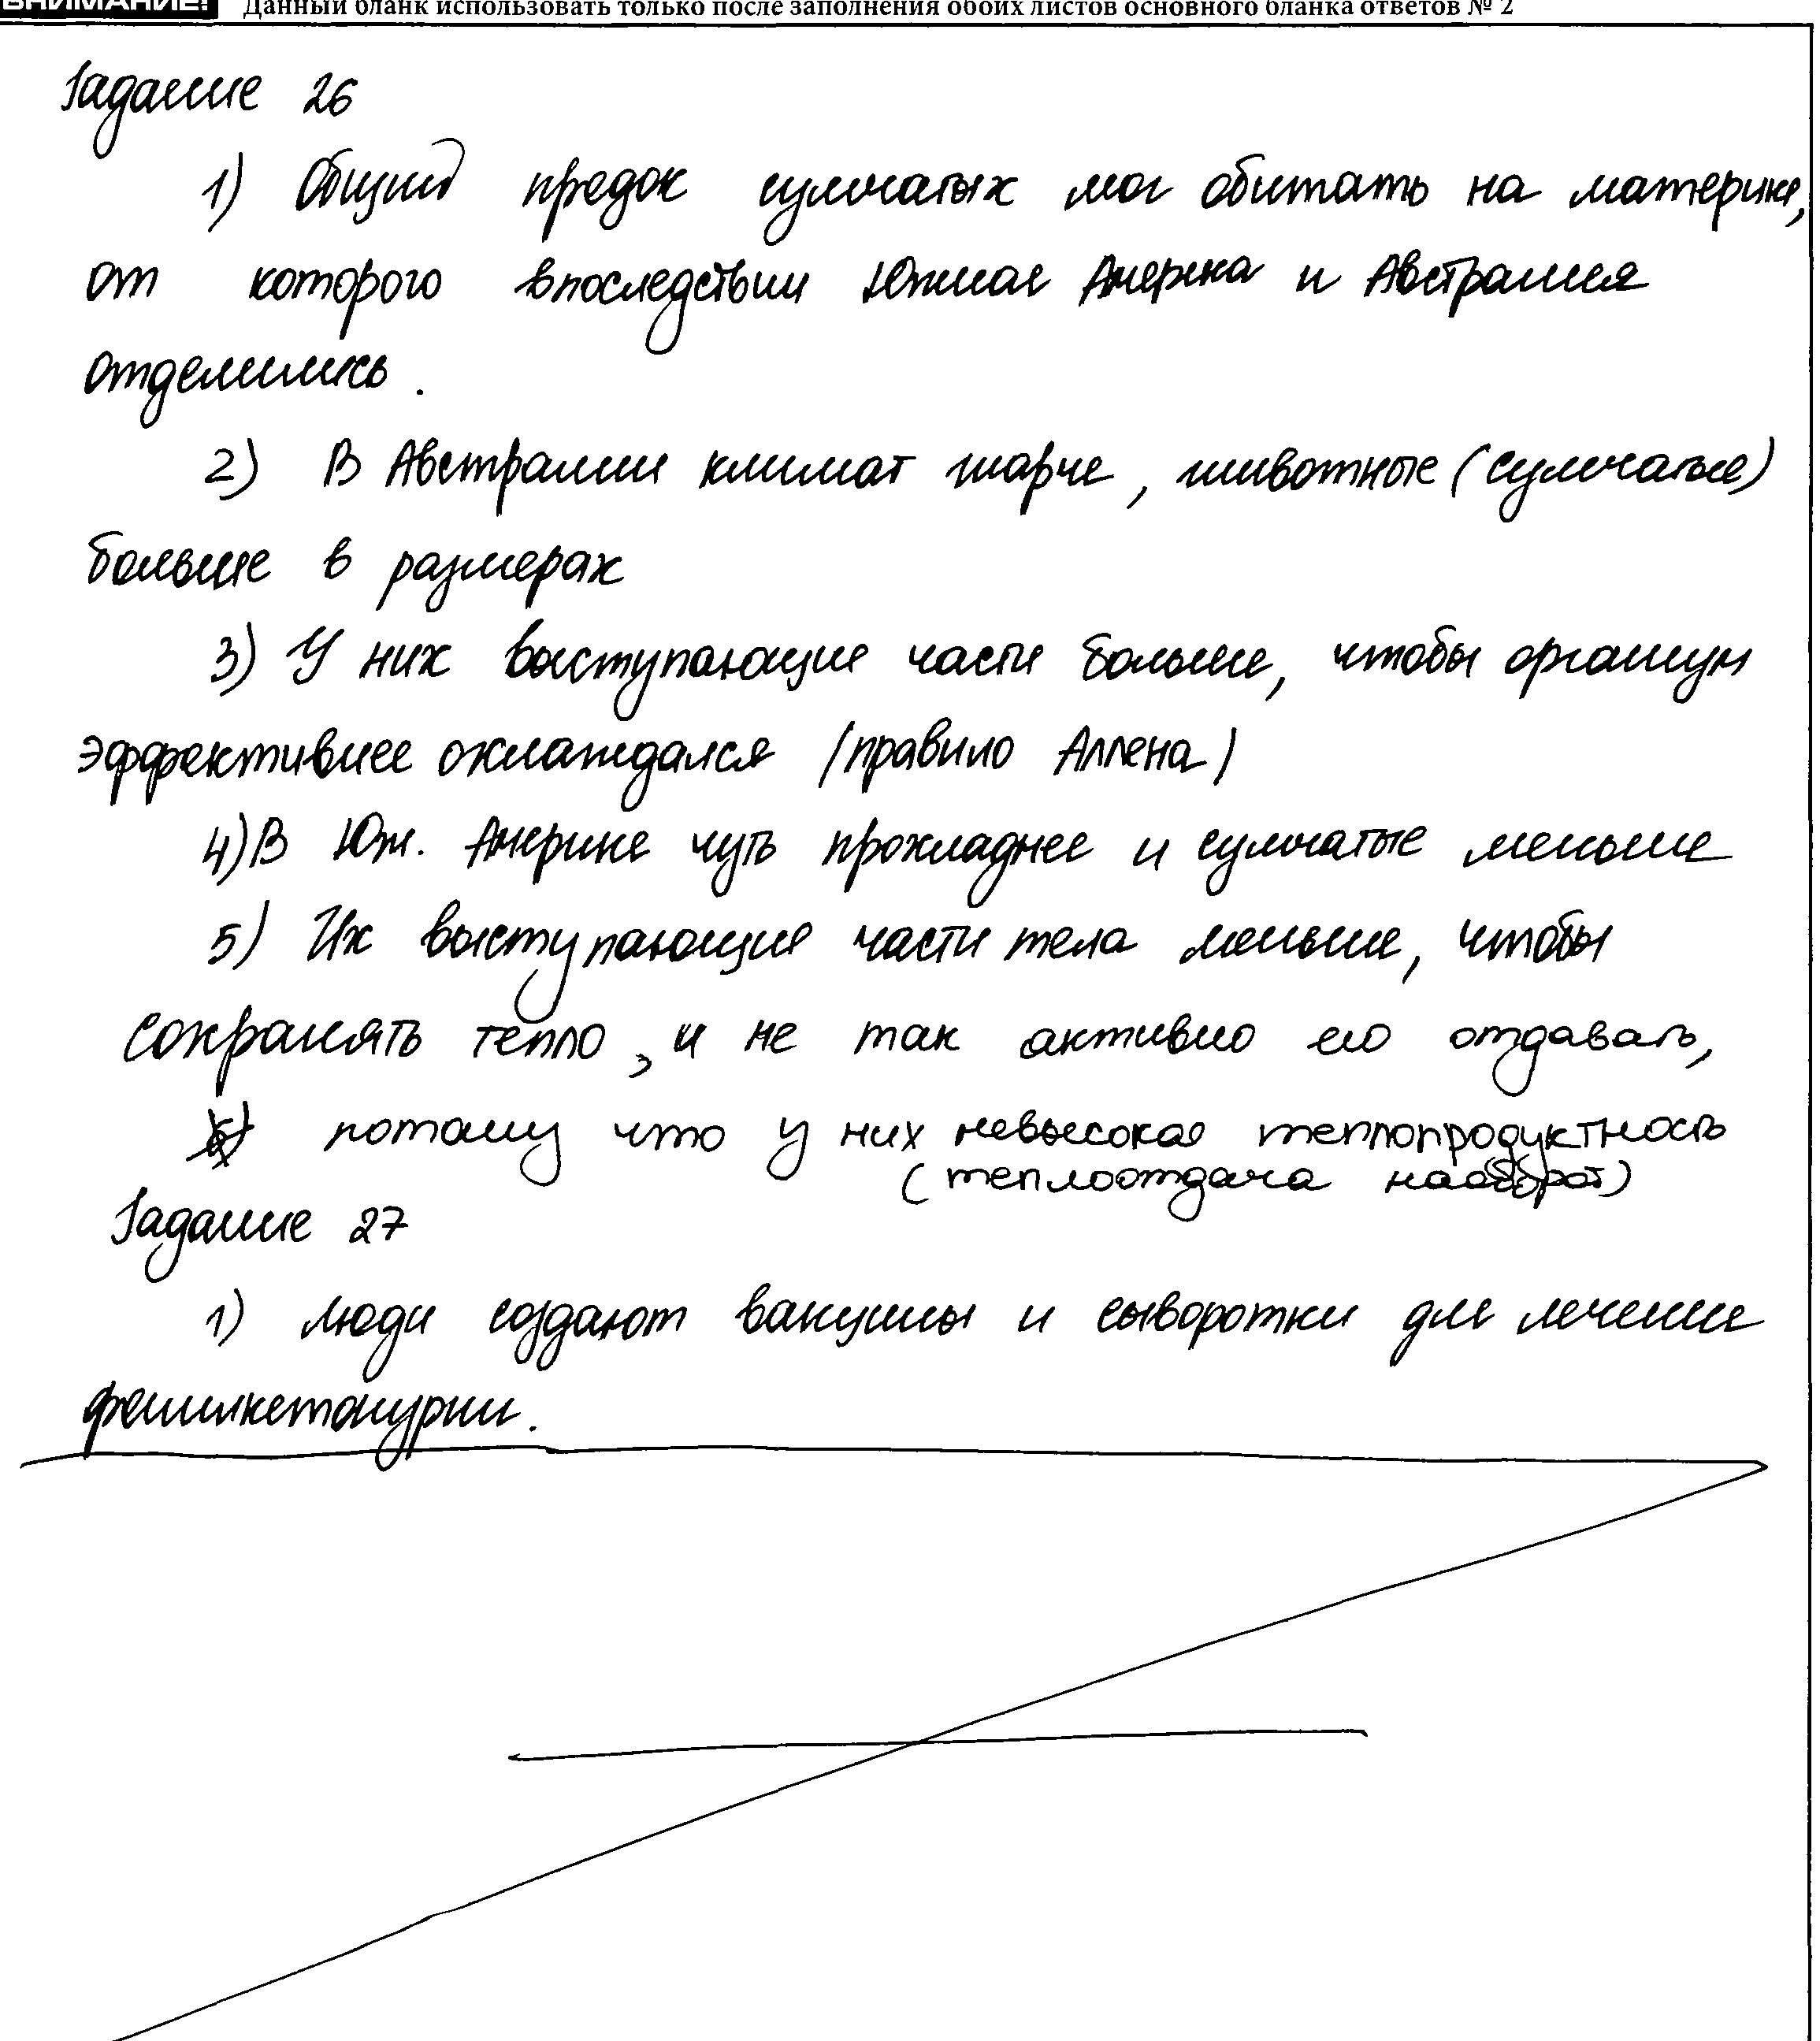 ВНИМАНИЕ! Данный бланк использовать только после заполнения обоих листов основного бланка ответов № 2
Задание 26
1) Общий предок сумчатых мог обитать на материке,
от которого впоследствии Южная Америка и Австралия
отделились.
2) В Австралии климат жарче, животные (сумчатые)
больше в размерах
3) У них выступающие части больше, чтобы организм
эффективнее охлаждался (правило Аллена)
4) В Юж. Америке чуть прохладнее и сумчатые меньше
5) Их выступающие части тела меньше, чтобы
сохранять тепло, и не так активно его отдавать,
потому что у них невысокая теплопродуктность
(теплоотдача наоборот)
Задание 27
1) люди создают вакцины и сыворотки для лечения
фенилкетонурии.